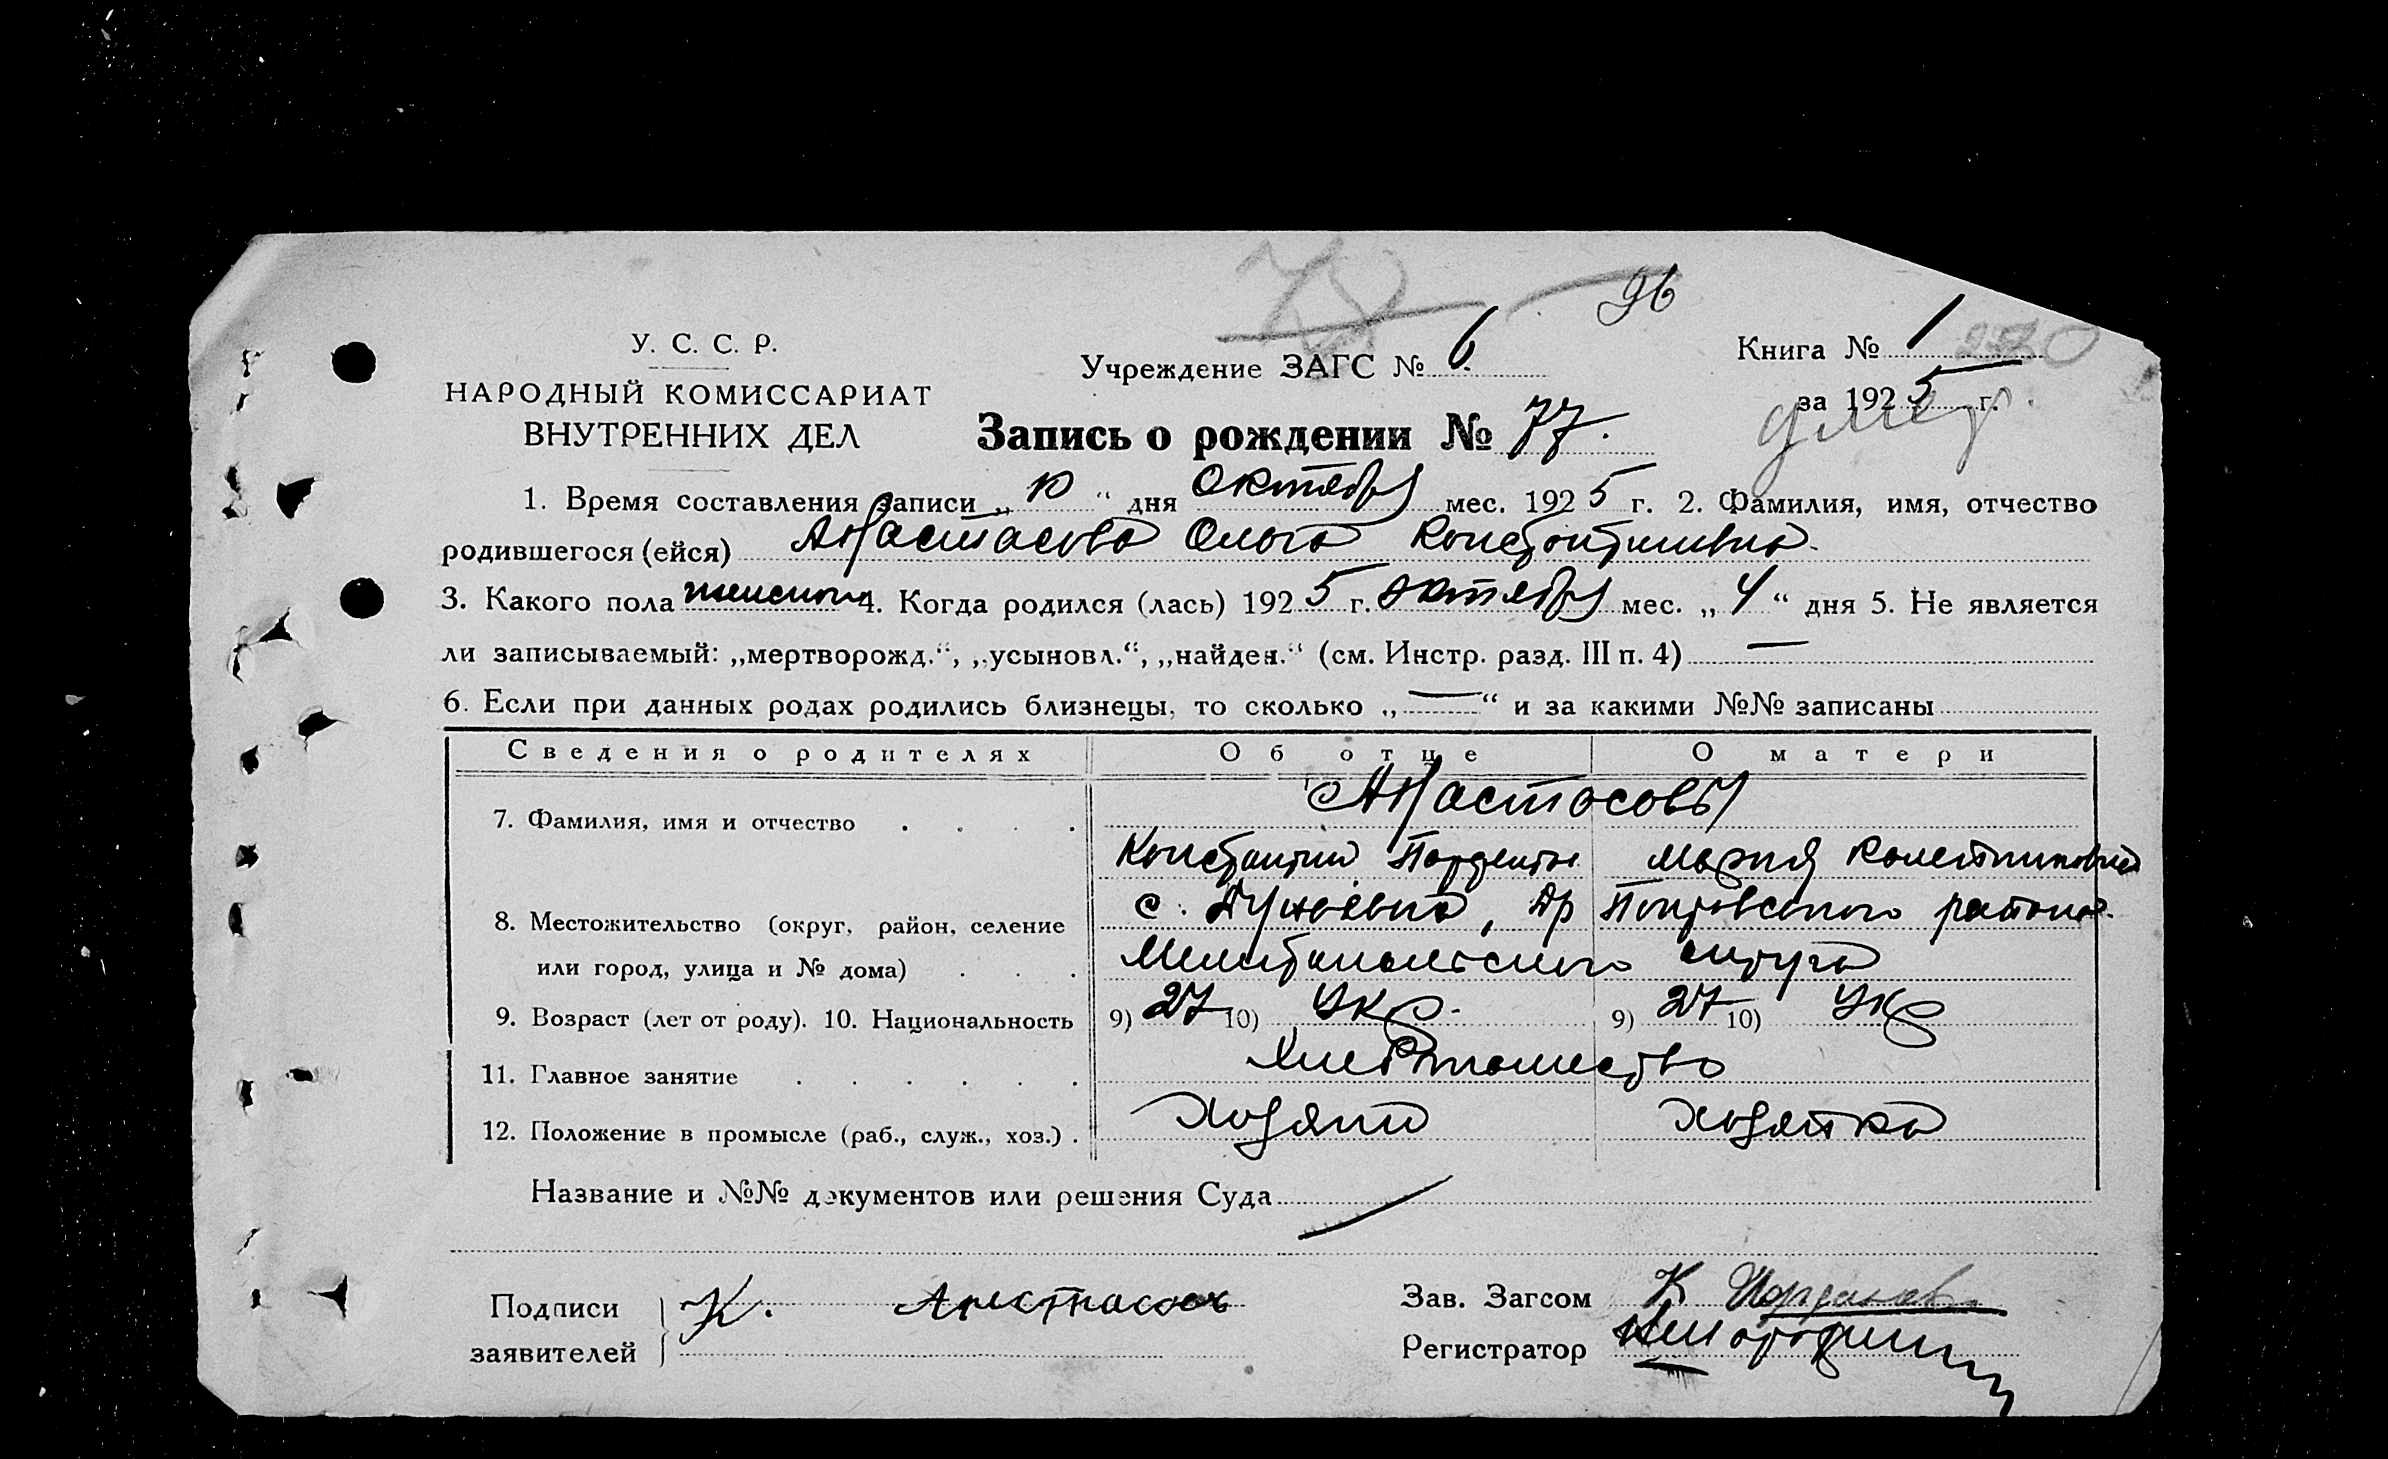 96
У. С. С. Р.
НАРОДНЫЙ КОМИССАРИАТ
ВНУТРЕННИХ ДЕЛ
Учреждение ЗАГС № 6.
Книга № 1
за 1925 г.
Запись о рождении № 77.
умер.
1. Время составления записи „10“ дня октября мес. 1925 г. 2. Фамилия, имя, отчество
родившегося (ейся) Анастасова Ольга Константиновна.
3. Какого пола женского 4. Когда родился (лась) 1925 г. октября мес. „4“ дня 5. Не является
ли записываемый: „мертворожд.“, „усыновл.“, „найден.“ (см. Инстр. разд. III п. 4) —
6. Если при данных родах родились близнецы, то сколько „—“ и за какими №№ записаны
Сведения о родителях Об отце О матери
7. Фамилия, имя и отчество . . . . Анастасовы
Константин Мария
8. Местожительство (округ, район, селение с. Дунаевка, Покровского района.
или город, улица и № дома) . . . Мелитопольского округа
9. Возраст (лет от роду). 10. Национальность 9) 27 10) Укр. 9) 27 10) Укр
11. Главное занятие . . . . . . Хлебопашество
12. Положение в промысле (раб., служ., хоз.) . Хозяин хозяйка
Название и №№ документов или решения Суда
Подписи
заявителей
К. Анастасов
Зав. Загсом К
Регистратор